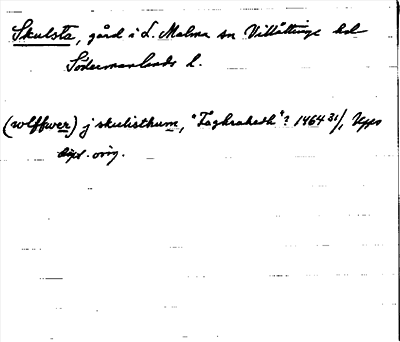 Skulsta, gård i L. Malma sn Villåttinge hd
Södermanlands l.
(wlffwer) j skulisthum, "Taghraketh"? 1464 31/1 Upps
dipl. orig.